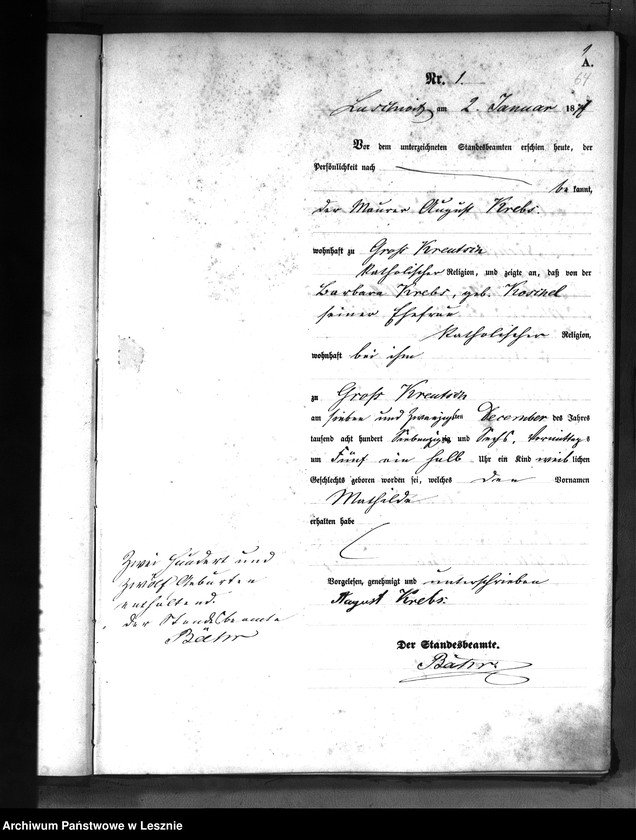 1
A.
64
Nr. 1.
Laßwitz am 2. Januar 1877
Vor dem unterzeichneten Standesbeamten erschien heute, der
Persönlichkeit nach
be kannt,
der Maurer August Krebs.
wohnhaft zu Groß Kreutsch
katholischer Religion, und zeigte an, daß von der
Barbara Krebs, geb. Koschel
seiner Ehefrau
katholischer Religion,
wohnhaft bei ihm
zu Groß Kreutsch
am sieben und zwanzigsten December des Jahres
tausend acht hundert Siebenzig und Sechs, Vormittags
um Fünf ein halb Uhr ein Kind weiblichen
Geschlechts geboren worden sei, welches den Vornamen
Mathilde
erhalten habe
Vorgelesen, genehmigt und unterschrieben
August Krebs.
Der Standesbeamte.
Bähr
Zwei Hundert und
zwölf Geburten
enthaltend.
Der Standesbeamte
Bähr
Archiwum Państwowe w Lesznie